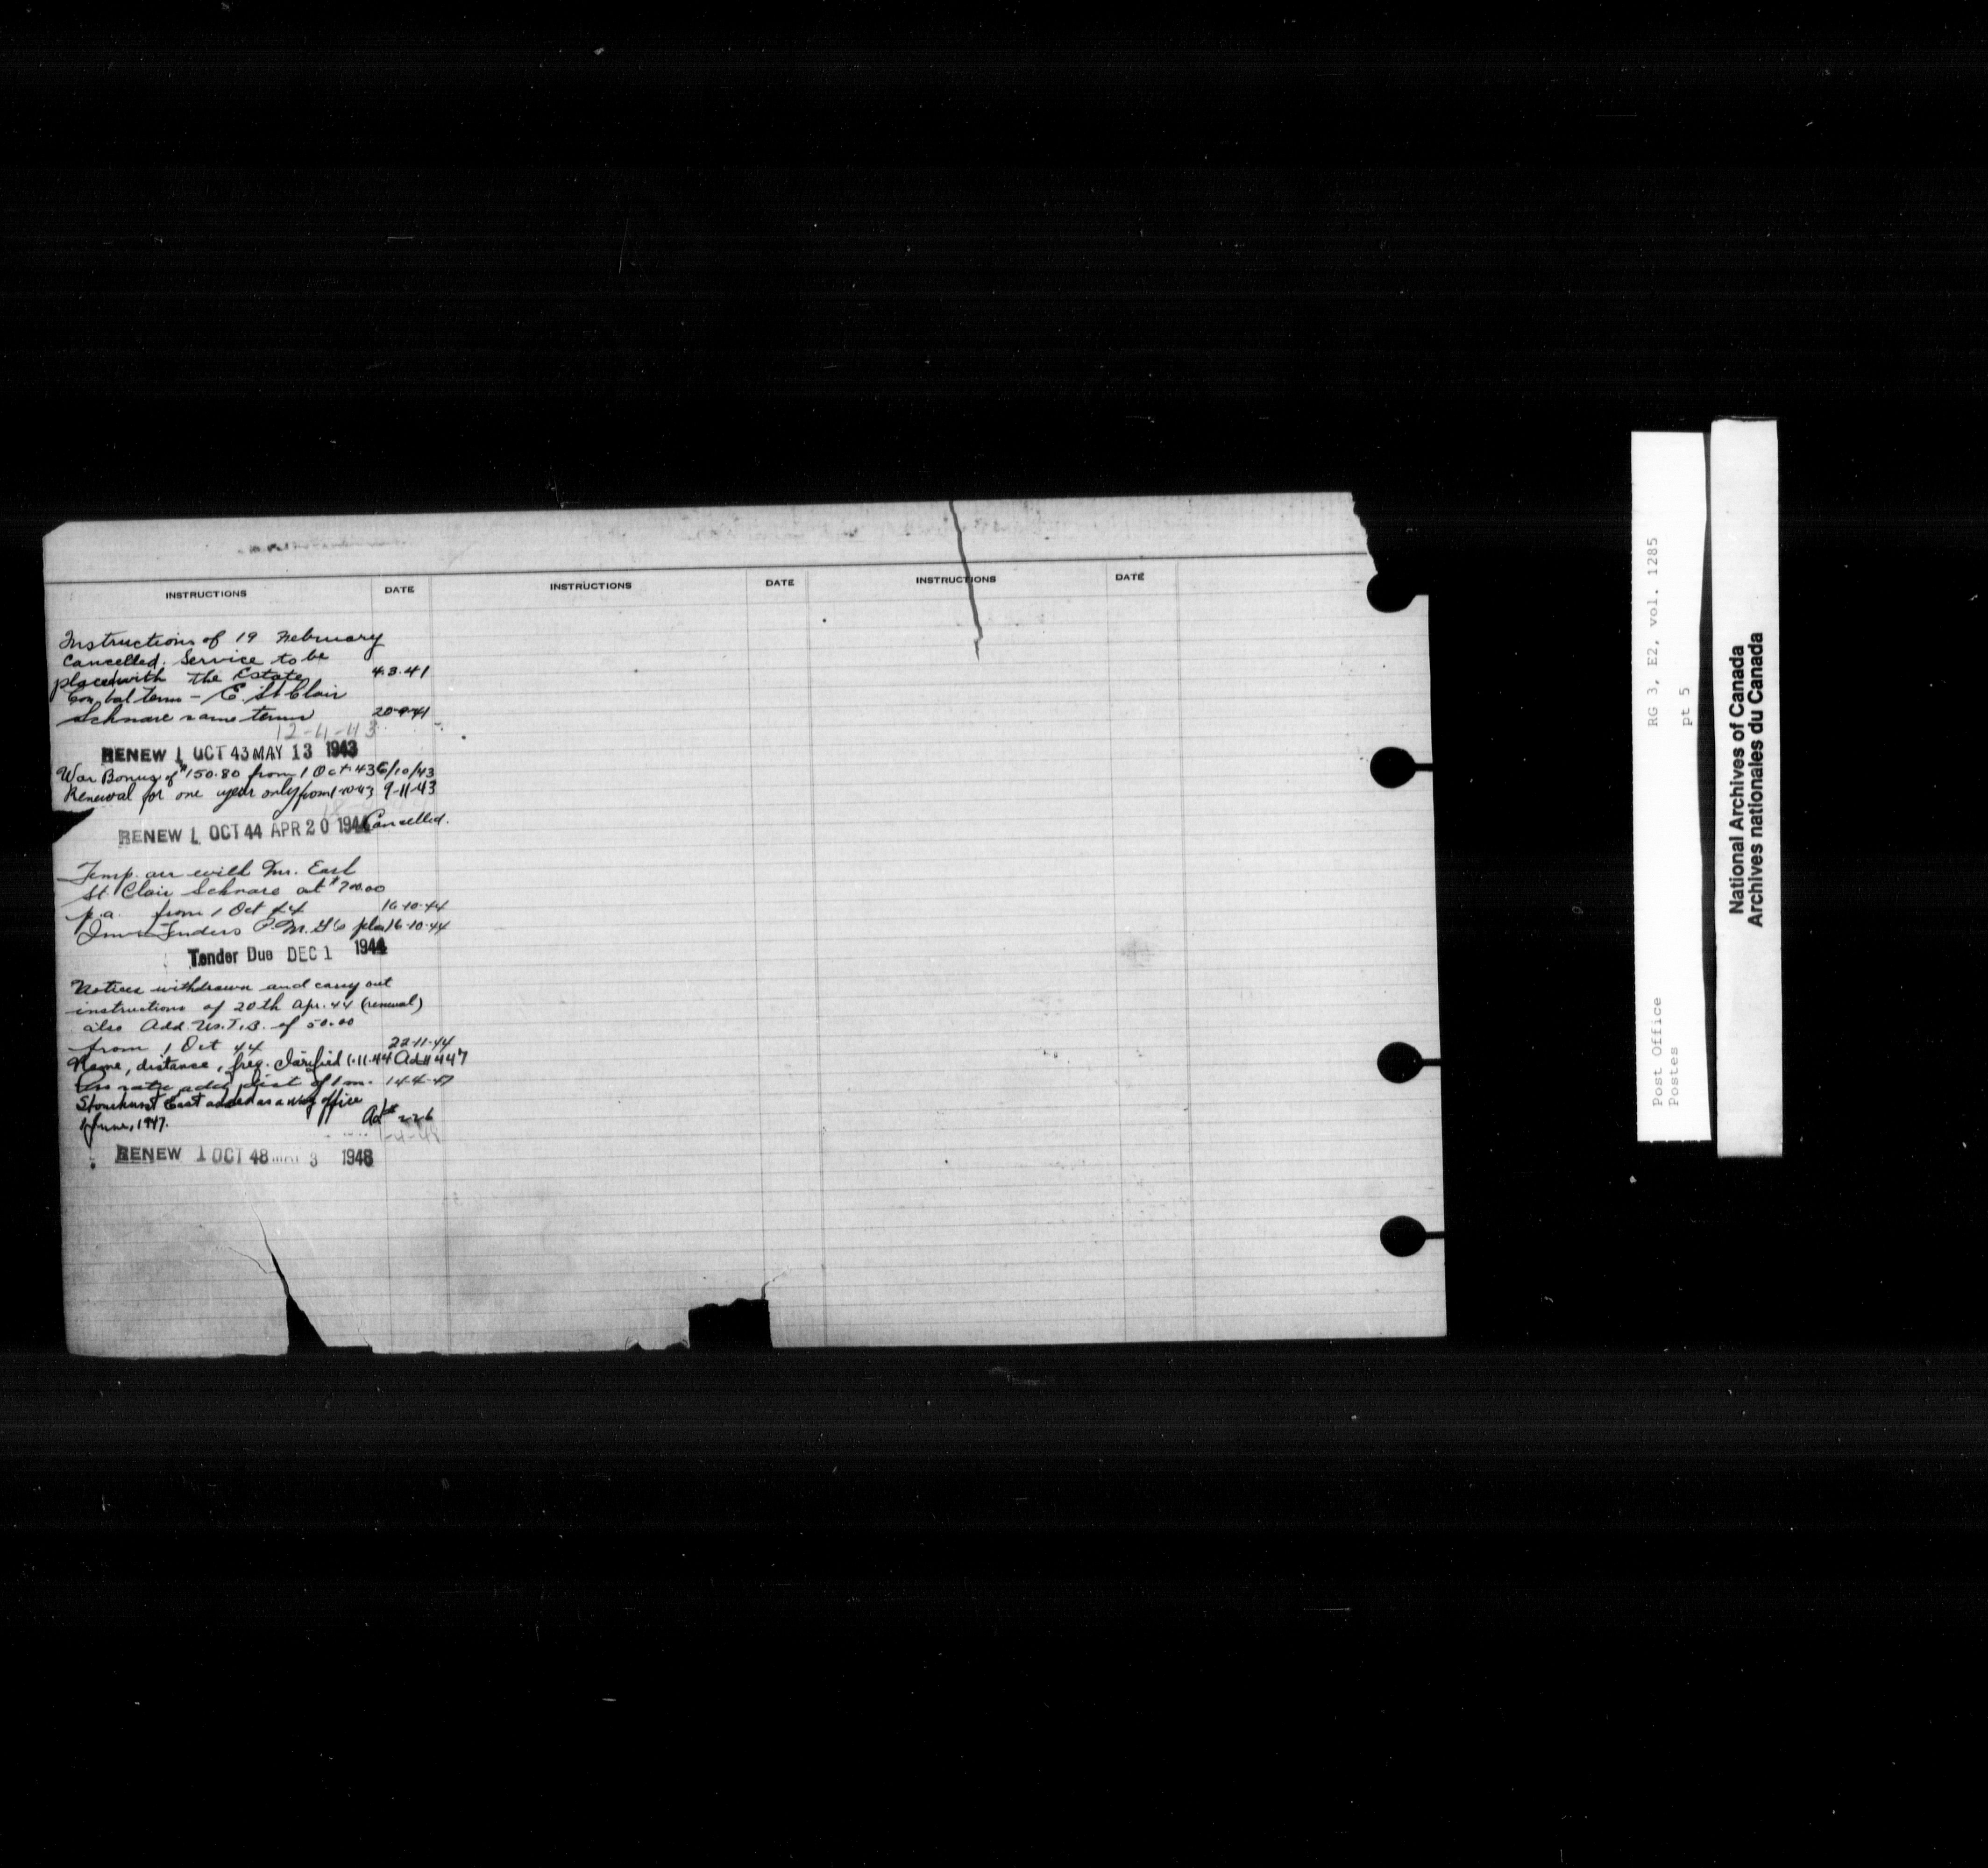 INSTRUCTIONS DATE INSTRUCTIONS DATE INSTRUCTIONS DATE
Instructions of 19 February
Cancelled. Service to be
placed with the Estate 4.3.41
Con. bal term - E. St Clair
Schnare same terms 20-9-41
12-4-43
RENEW 1 OCT 43 MAY 13 1943
War Bonus of $150.80 from 1 Oct. 43 6/10/43
Renewal for one year only from 1-10-43 9-11-43
RENEW 1 OCT 44 APR 20 1944 Cancelled.
Temp. arr with Mr. Earl
St. Clair Schnare at $700.00
p.a. from 1 Oct 44 16-10-44
Inv. Tenders P.M.G's plan 16-10-44
Tender Due DEC 1 1944
Notices withdrawn and carry out
instructions of 20th Apr. 44 (renewal)
also Add. W.T.B. of 50.00
from 1 Oct 44 22-11-44
Name, distance, freq. Clarified 1-11-44 Ad# 447
Pro rata adds dist of 1 m. 14-4-47
Stonehurst East added as a way office
1 June, 1947. Ad# 226
1-4-48
RENEW 1 OCT 48 MAY 3 1948
RG 3, E2, vol. 1285
pt 5
Post Office
Postes
National Archives of Canada
Archives nationales du Canada